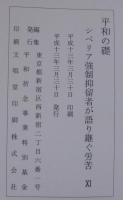 平和の礎
シベリア強制抑留者が語り継ぐ労苦 XI
平成十三年三月三十日 印刷
平成十三年三月三十日 発行
東京都新宿区西新宿二丁目六番一号
編集
発行 平和祈念事業特別基金
印刷 文唱堂印刷株式会社